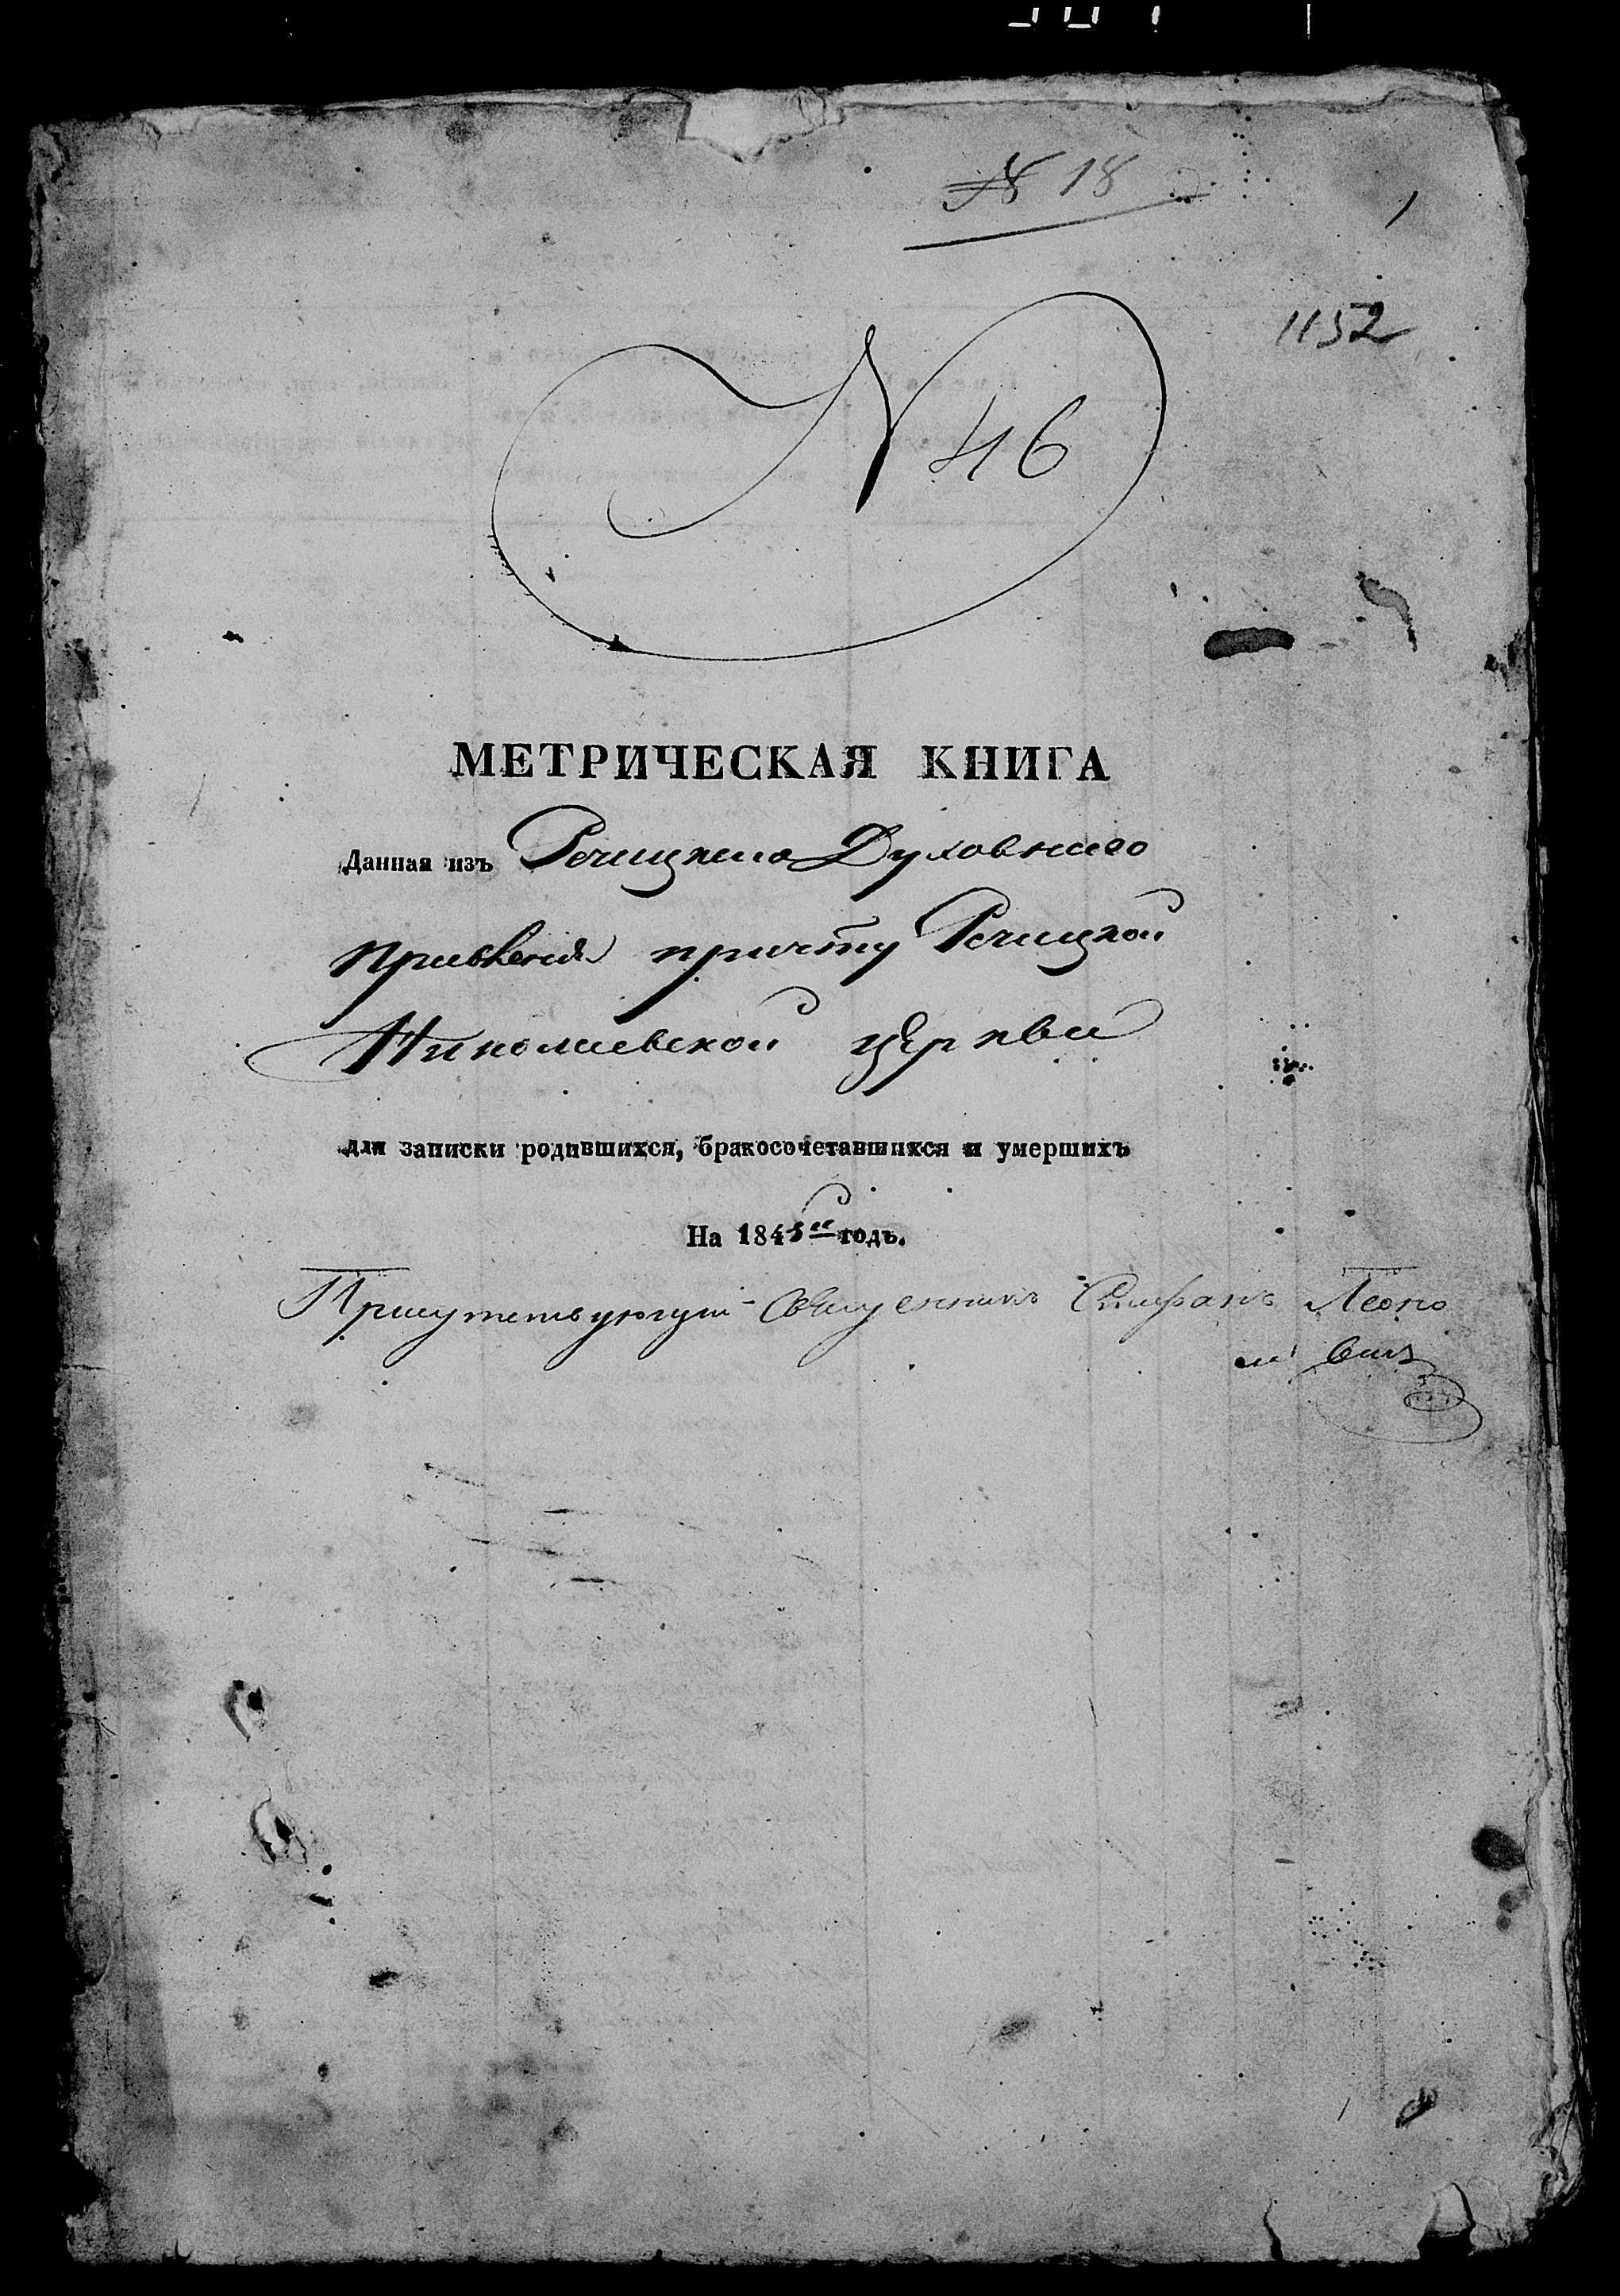 № 18
1
1152
N 46
МЕТРИЧЕСКАЯ КНИГА
Данная изъ Речицкаго Духовнаго
Правленія причту Речицкой
Николаевской церкви
для записки родившихся, бракосочетавшихся и умершихъ
На 1845 й годъ.
Присутствующий Священникъ Стефанъ